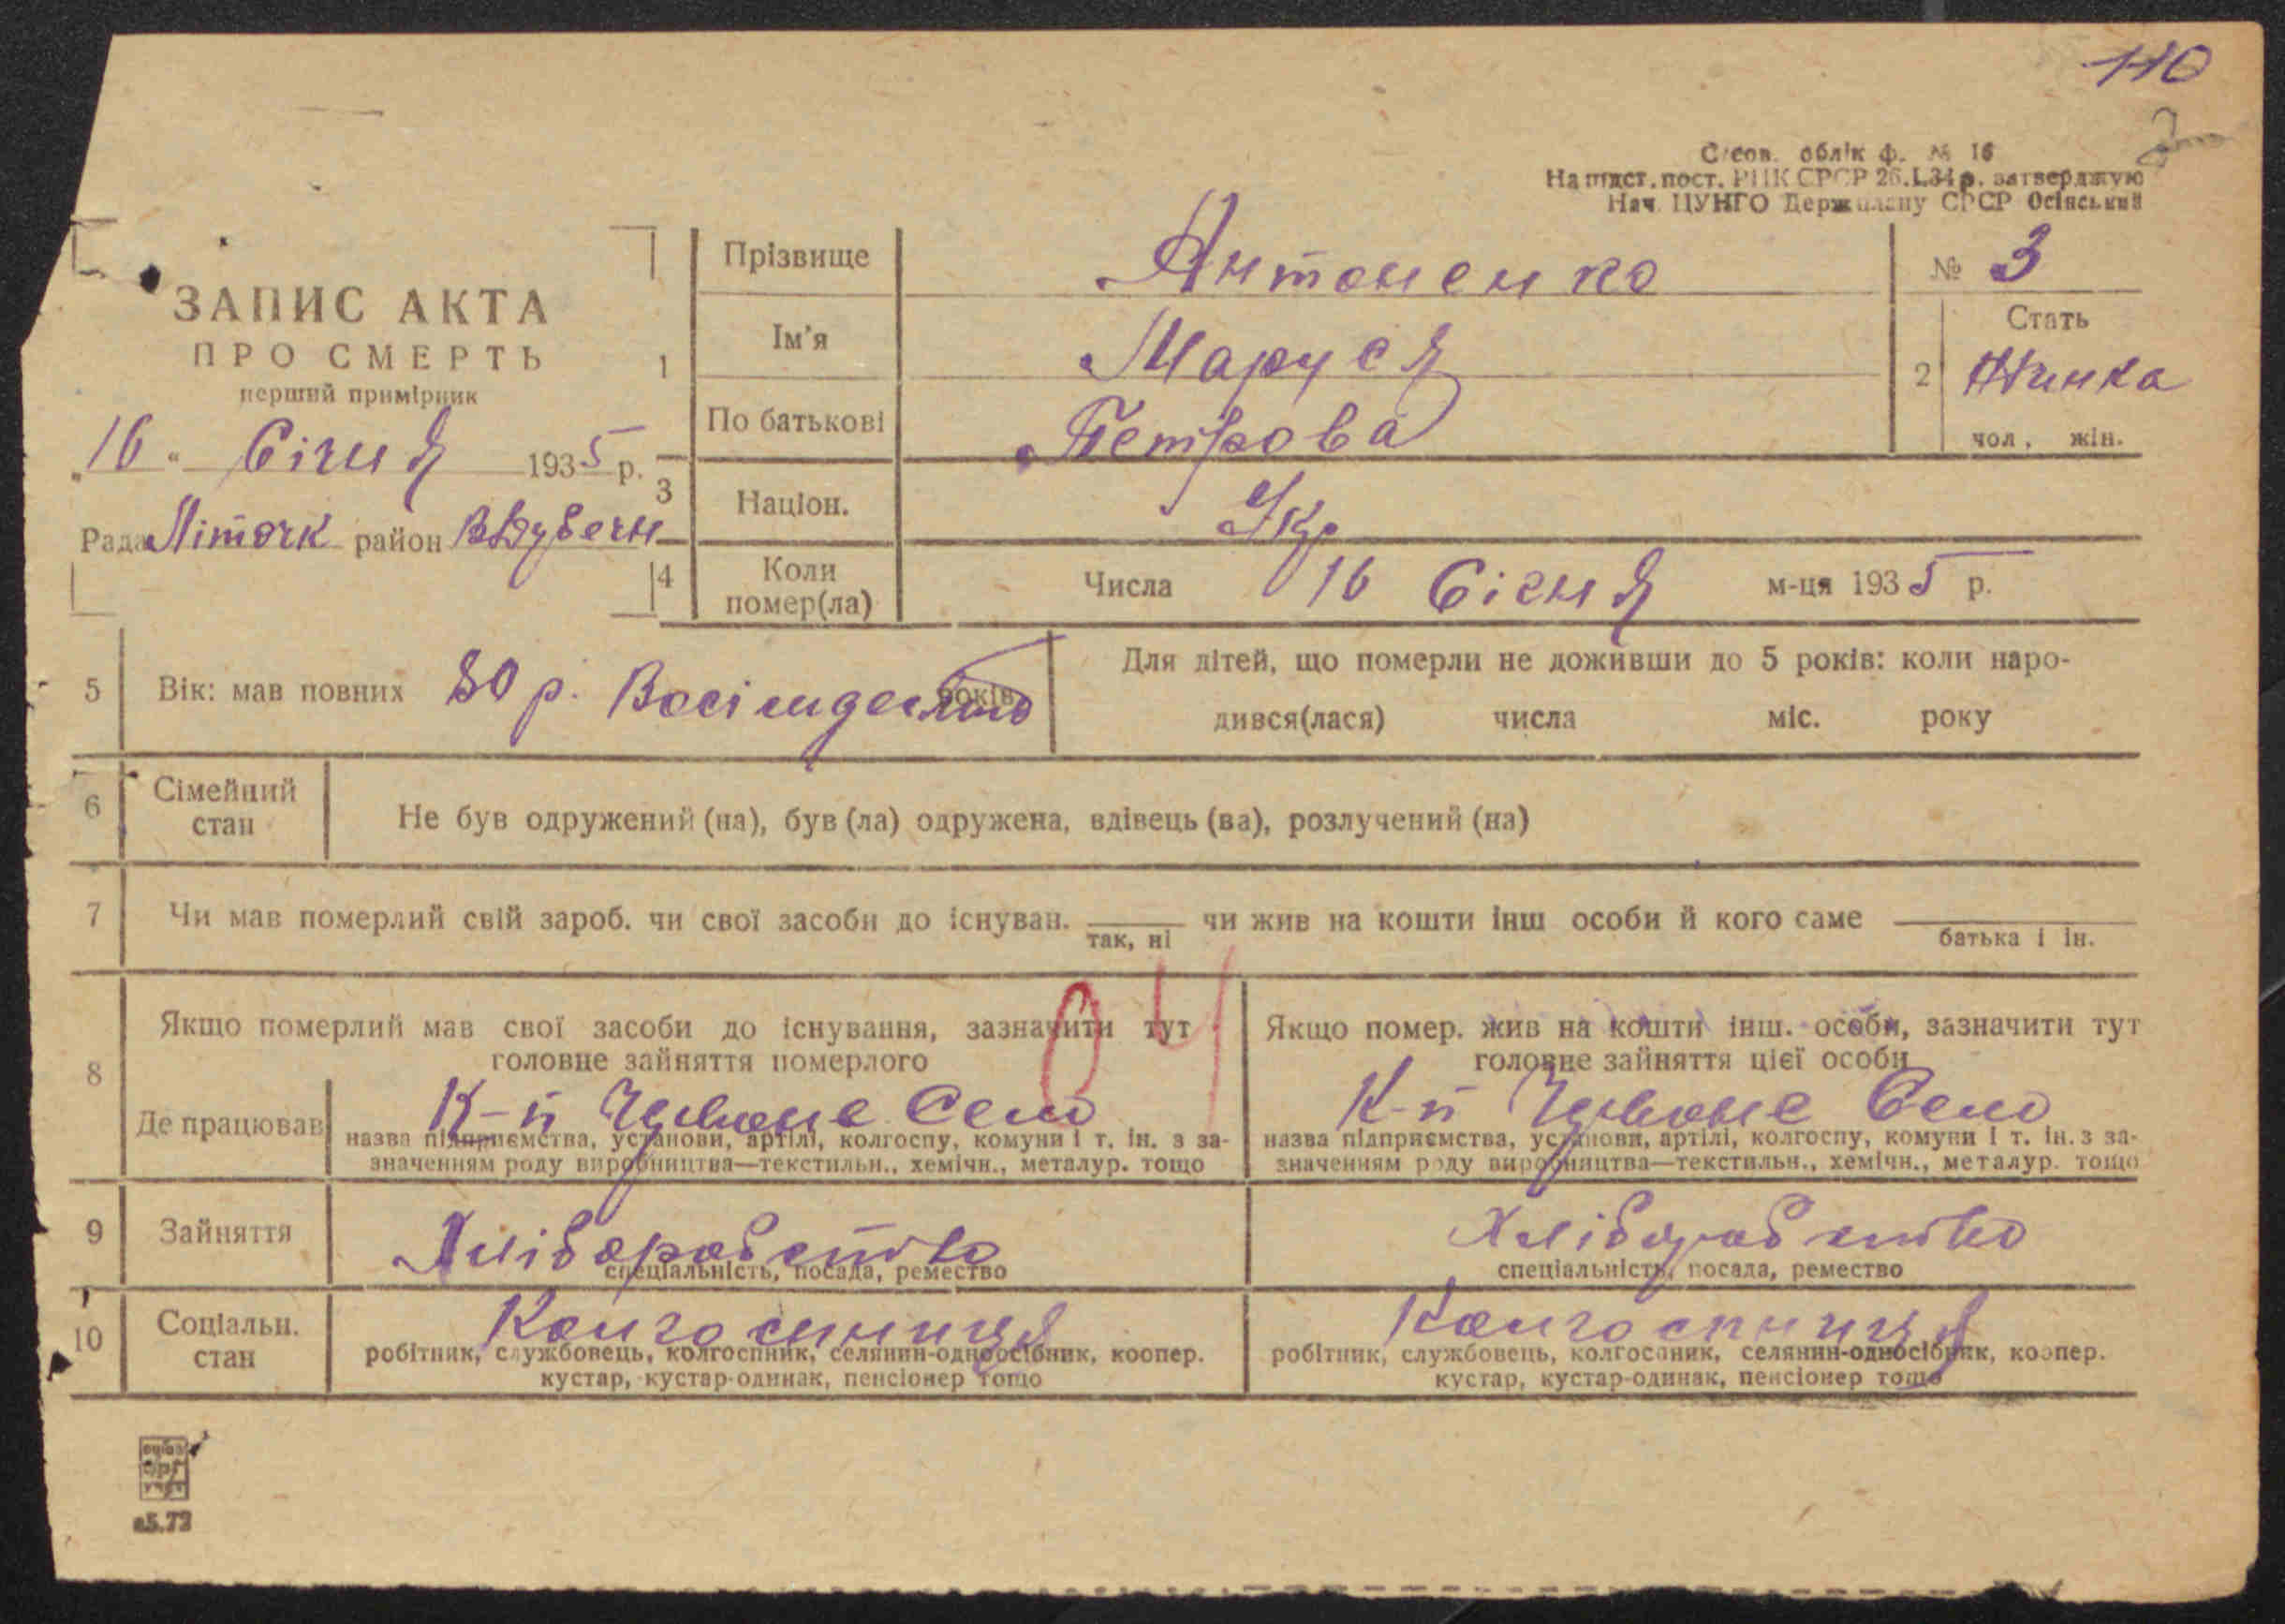 110
С/сов. облік ф. № 16
На підст. пост. РНК СРСР 26.I.34 р. затверджую
Нач. ЦУНГО Держплану СРСР Осінський
ЗАПИС АКТА
ПРО СМЕРТЬ
перший примірник
„16“ Січня 1935 р.
Рада Літочк район В Дубечн
1 Прізвище Антоненко
Ім'я Маруся
По батькові Петрова
№ 3
2 Стать
Жинка
чол. жін.
3 Націон. Укр
4 Коли помер(ла) Числа 16 Січня м-ця 1935 р.
5 Вік: мав повних 80 р. Восімдесято років
Для дітей, що померли не доживши до 5 років: коли наро-
дився(лася) числа міс. року
6 Сімейний стан Не був одружений (на), був (ла) одружена, вдівець (ва), розлучений (на)
7 Чи мав померлий свій зароб. чи свої засоби до існуван. чи жив на кошти інш особи й кого саме
так, ні батька і ін.
04
8 Якщо померлий мав свої засоби до існування, зазначити тут
головне зайняття померлого
Де працював К-п Червоне Село
назва підприємства, установи, артілі, колгоспу, комуни і т. ін. з за-
значенням роду виробництва—текстильн., хемічн., металур. тощо
Якщо помер. жив на кошти інш. особи, зазначити тут
головне зайняття цієї особи
К-п Червоне Село
назва підприємства, установи, артілі, колгоспу, комуни і т. ін. з за-
значенням роду виробництва—текстильн., хемічн., металур. тощо
9 Зайняття Хліборобство
спеціальність, посада, ремество
Хліборобство
спеціальність, посада, ремество
10 Соціальн. стан Колгоспниця
робітник, службовець, колгоспник, селянин-одноосібник, коопер.
кустар, кустар-одинак, пенсіонер тощо
Колгоспниця
робітник, службовець, колгоспник, селянин-одноосібник, коопер.
кустар, кустар-одинак, пенсіонер тощо